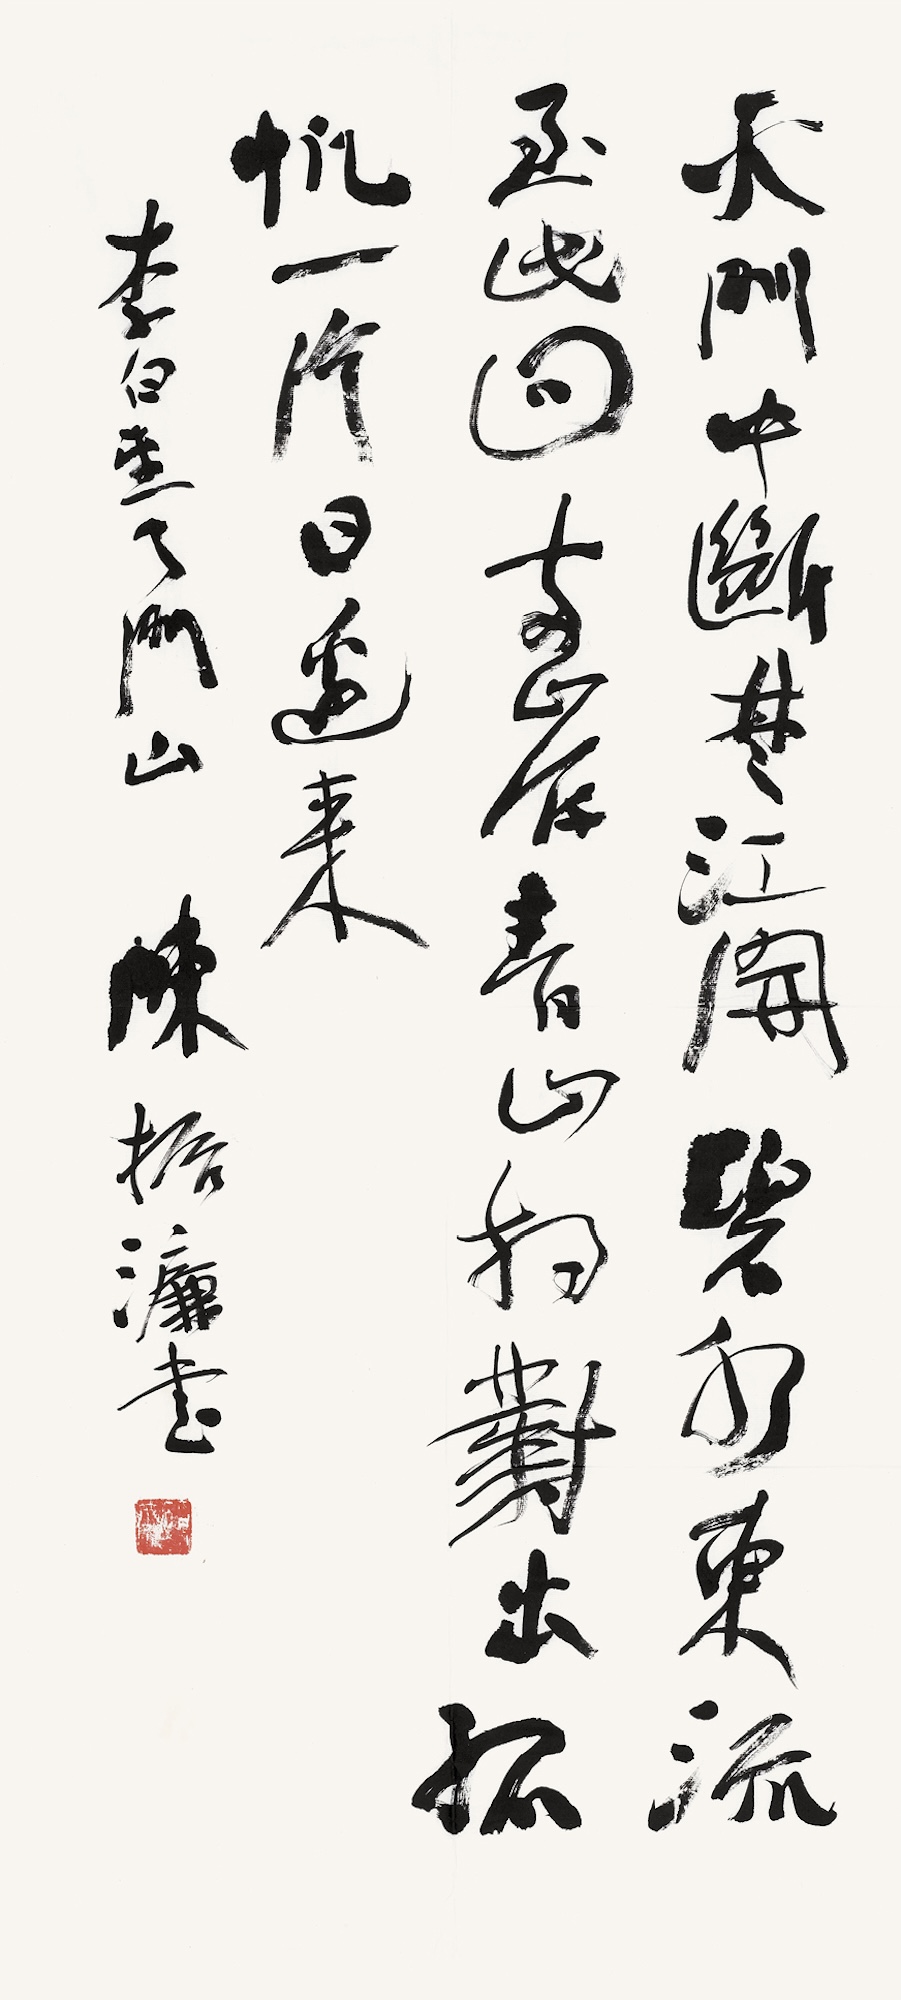 天門中斷楚江開碧水東流
至此回兩岸青山相對出孤
帆一片日邊来
李白望天門山 陳振濂書